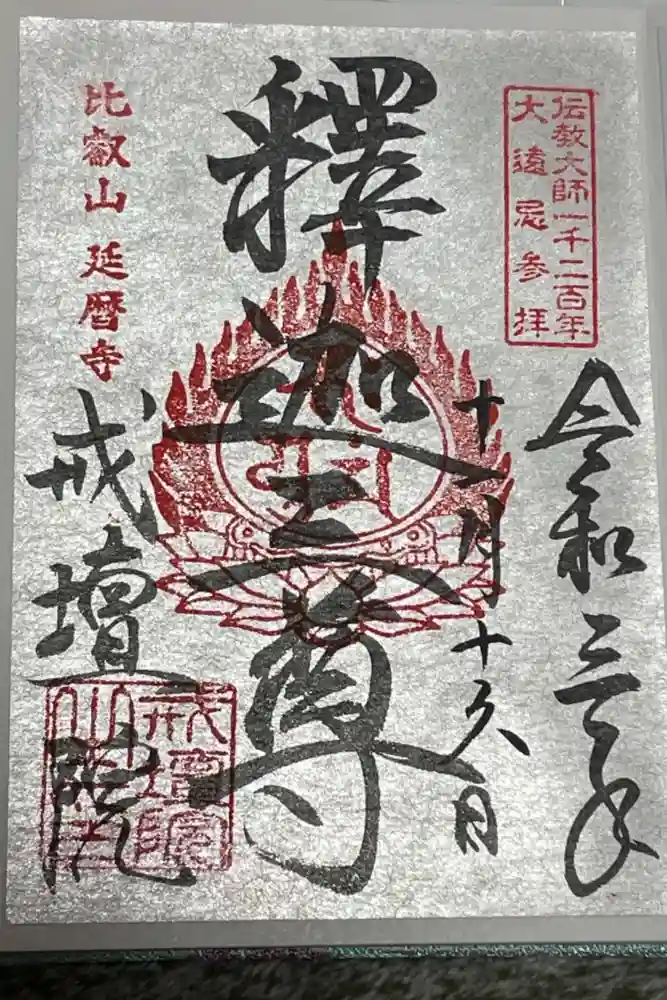 伝教大師一千二百年
大遠忌参拝
令和三年
十一月十九日
釋迦三尊
比叡山 延暦寺
戒壇院
戒壇院